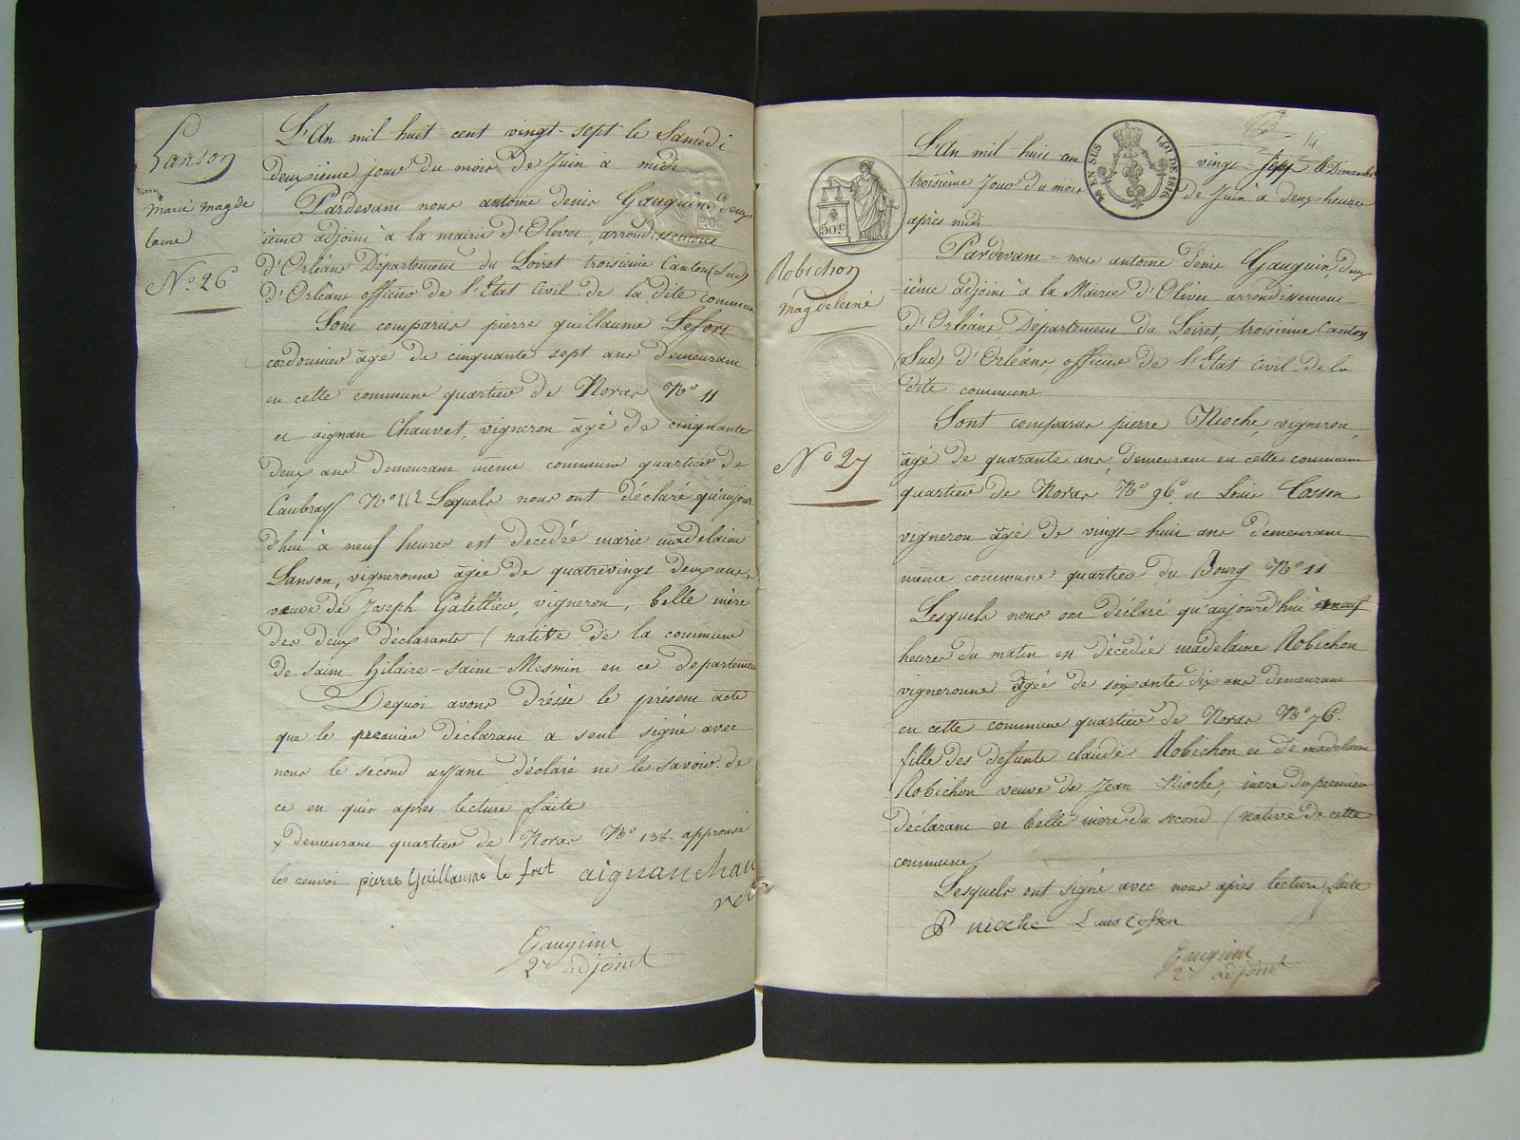 Sanson
Marie magde
laine
N.o 26
L'An mil huit cent vingt-sept le Samedi
deuxième jour du mois de Juin à midi
Pardevant nous antoine denis Gauguin deux
ième adjoint à la mairie d'Olivet, arrondissement
d'Orléans Département du Loiret troisieme Canton (Sud)
d'Orléans officier de l'Etat Civil de la dite commune
Sont comparus pierre guillaume Lefort
cordonnier âgé de cinquante sept ans demeurant
en cette commune quartier de Noras No 11
et aignan Chauvet, vigneron âgé de cinquante
deux ans demeurant même commune quartier de
Caubray No 112 Lesquels nous ont déclaré qu'aujour
d'hui à neuf heures est decédée marie madelaine
Sanson, vigneronne âgée de quatrevingt deux ans
veuve de Joseph Galellier, vigneron, belle mère
des deux déclarants (native de la commune
de saint hilaire-saint-Mesmin en ce departement
Dequoi avons dréssé le présent acte
que le premier déclarant a seul signé avec
nous le second ayant déclaré ne le savoir de
ce en quis apres lecture faite
x demeurant quartier de Noras No 132 approuvé
le renvoi pierre Guillaume le fort aignan chau
vet
Gauguin
2e adjoint
LOI DE 1816
50c
L'An mil huit cent vingt-sept le Dimanche
troisième Jour du mois de Juin à deux heures
après midi
Robichon
magdeleine
N.o 27
Pardevant nous antoine denis Gauguin, deux
ième adjoint à la Mairie d'Olivet arrondissement
d'Orléans Département du Loiret, troisieme Canton
(Sud) d'Orléans officier de l'Etat Civil de la
dite commune
Sont comparus pierre Nioche, vigneron,
âgé de quarante ans, demeurant en cette commune
quartier de Noras No 96 et Louis Cosson
vigneron âgé de vingt-huit ans demeurant
même commune quartier du Bourg No 11
Lesquels nous ont déclaré qu'aujourd'hui neuf
heures du matin est décédée madelaine Robichon
vigneronne âgée de soixante dix ans demeurant
en cette commune quartier de Noras No 76.
fille des defunts claude Robichon et de madelaine
Robichon veuve de Jean Nioche, mère du premier
déclarant et belle mère du second (native de cette
commune
Lesquels ont signé avec nous après lecture faite
P nioche Louis Cosson
Gauguin
2e adjoint